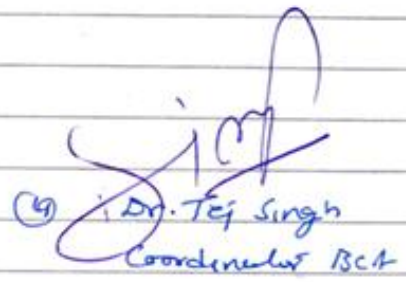 (4) Dr. Tej Singh
Coordinator BCA